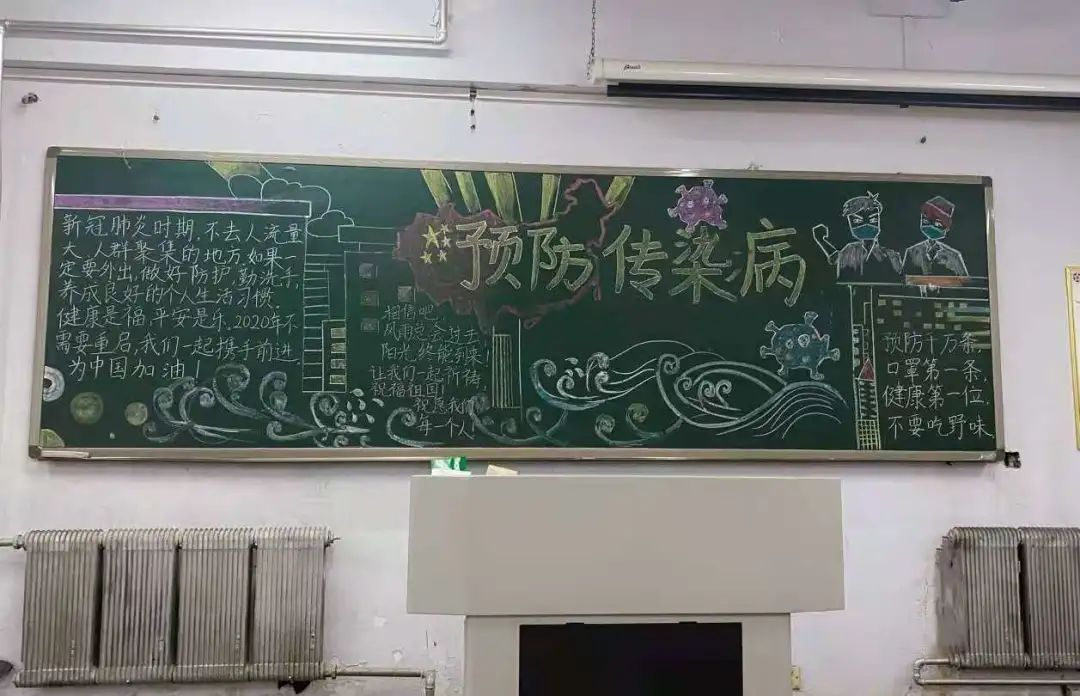 新冠肺炎时期,不去人流量
大,人群聚集的地方,如果一
定要外出,做好防护,勤洗手,
养成良好的个人生活习惯
健康是福,平安是乐,2020年不
需要重启,我们一起携手前进
为中国加油!
预防传染病
相信吧
风雨总会过去
阳光终能到来!
让我们一起祈祷
祝福祖国!
祝愿我们
每一个人
预防千万条,
口罩第一条,
健康第一位,
不要吃野味